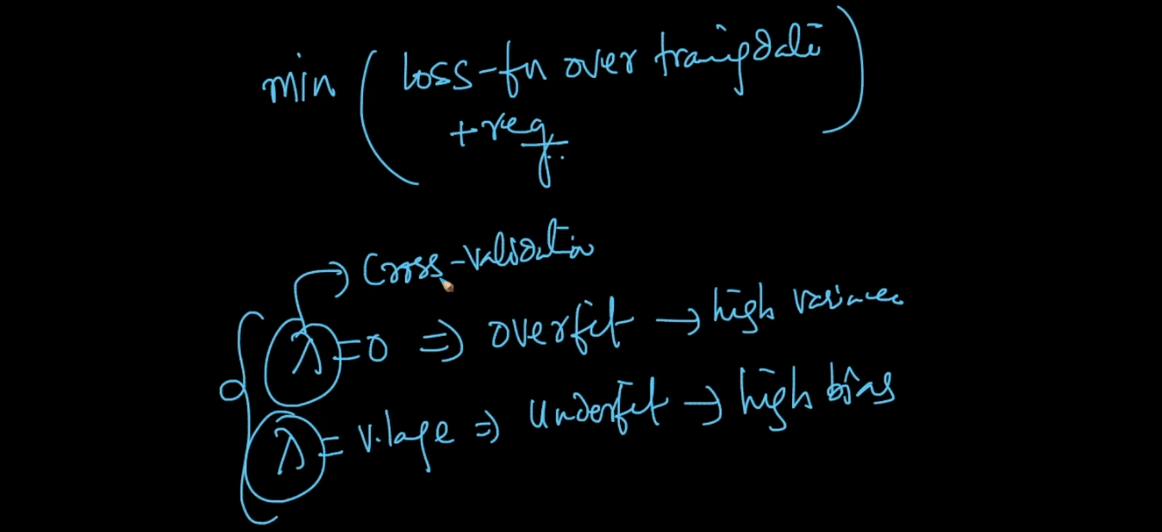 min ( loss-fn over traingdata
+ reg. )
→ Cross-validation
λ = 0 ⇒ overfit → high variance
λ = v.lage ⇒ Underfit → high bias